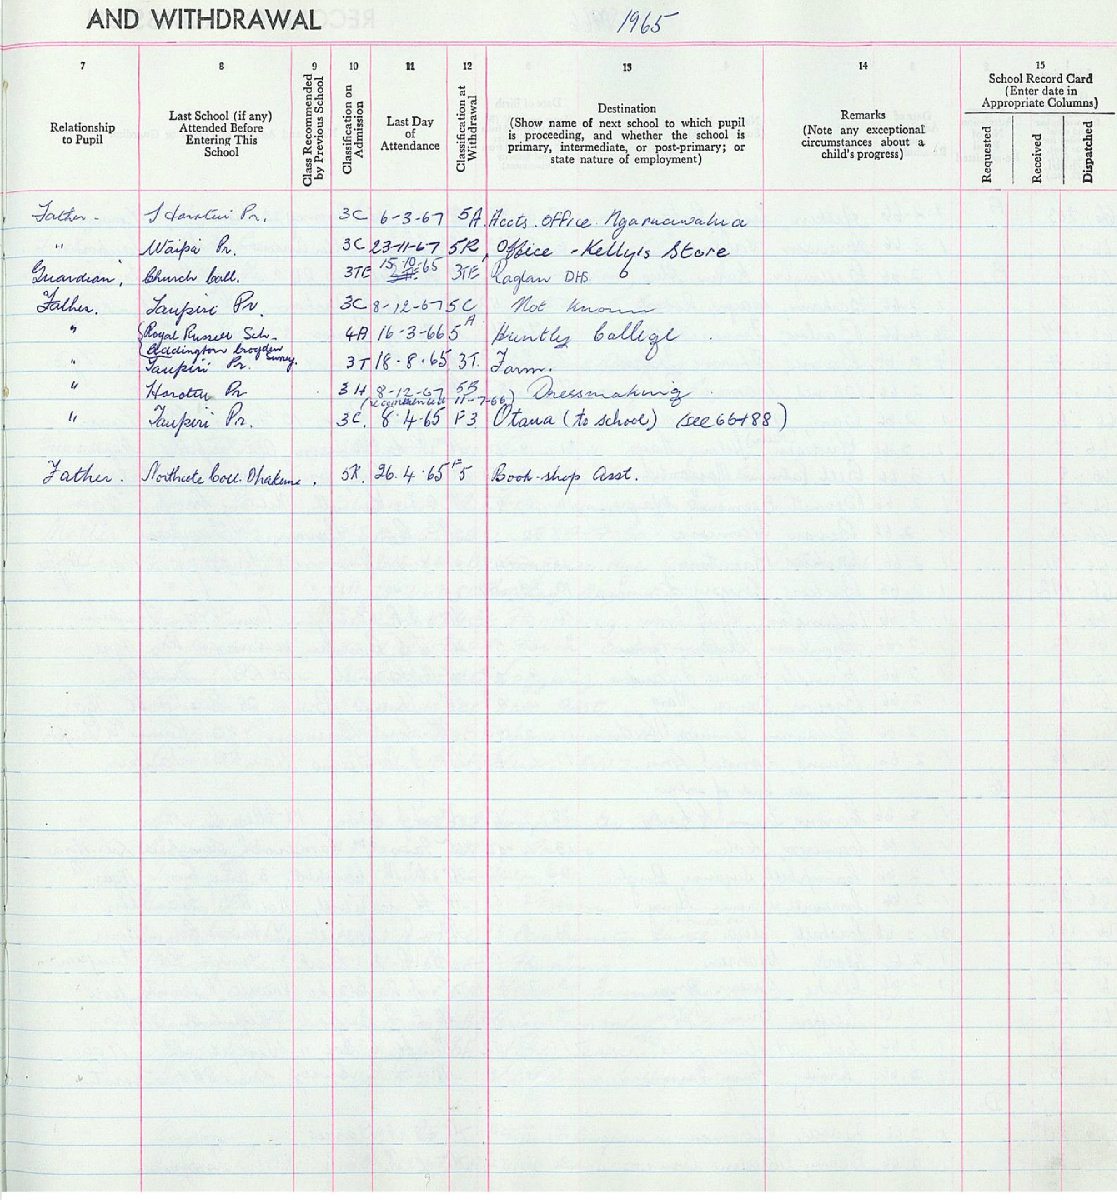 AND WITHDRAWAL 1965
7 8 9 10 11 12 13 14 15
Relationship to Pupil
Last School (if any) Attended Before Entering This School
Class Recommended by Previous School
Classification on Admission
Last Day of Attendance
Classification at Withdrawal
Destination (Show name of next school to which pupil is proceeding, and whether the school is primary, intermediate, or post-primary; or state nature of employment)
Remarks (Note any exceptional circumstances about a child's progress)
School Record Card (Enter date in Appropriate Columns)
Requested Received Dispatched
Father. Horotiu Pr. 3C 6-3-67 5A. Accts. Office. Ngaruawahia
" Waipa Pr. 3C 23-11-67 5R, Office - Kelly's Store
Guardian, Church Coll. 3TE 15-10-65 3TE Raglan DHS
Father. Taupiri Pr. 3C 8-12-67 5C Not known
" Royal Russell Sch. 4A 16-3-66 5A Huntly College
Addington Croydon Surrey.
" Taupiri Pr. 3T 18-8-65 3T. Farm.
" Horotiu Pr 3H 8-12-67 5B Dressmaking
11-7-66)
" Taupiri Pr. 3C. 8.4.65 F3 Otaua (to school) (see 66+88)
Father. Northcote Coll. 5R. 26.4.65 F5 Book-shop Asst.